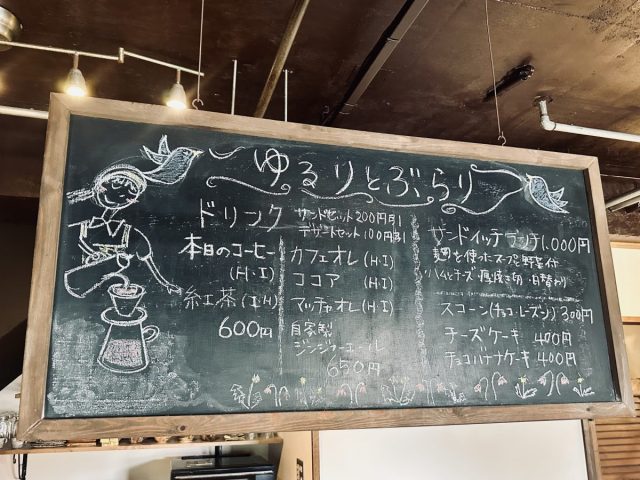 ゆるりとぶらり
ドリンク
サンドセット200円引
デザートセット100円引
本日のコーヒー
(H・I)
紅茶(I・H)
600円
カフェオレ(H・I)
ココア(H・I)
マッチャオレ(H・I)
自家製
ジンジャーエール
650円
サンドイッチランチ1.000円
麹を使ったスープと野菜付
ハムとチーズ・厚焼き卵・日替わり
スコーン(チョコ・レーズン)300円
チーズケーキ 400円
チョコバナナケーキ 400円